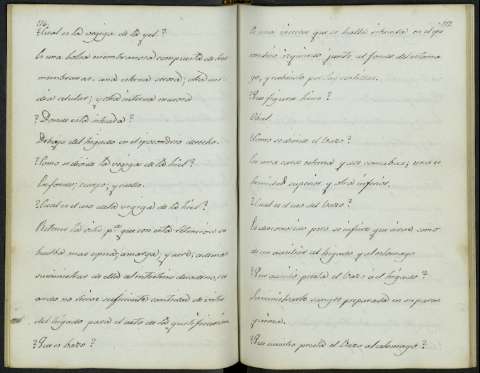 116,
?Cual es la vegiga de la yel?
Es una bolsa membranosa compuesta de tres
membranas: una esterna serosa; otra me-
dia celular; y otra interna mucosa
?Donde está situada?
Debajo del higado en el ipocondrio derecho.
?Como se divide la vegiga de la hiel?
En fondo, cuerpo, y cuello.
?Cual es el uso de la vegiga de la hiel?
Retener la vilis pª que con esta retencion se
halle mas espesa, amarga, y acre, ademas
suministrar de ella al intestino duodeno, cu-
ando no viene suficiente cantidad de vilis
del higado para el acto de la quilificacion
?Que es bazo?
117.
Es una viscera que se halla situada en el ipo-
condrio izquierdo junto al fondo del estoma-
go, y cubierto por las costillas.
?Que figura tiene?
Oval.
?Como se divide el bazo?
En una cara esterna y otra concaba; una es-
tremidad superior y otra inferior.
?Cual es el uso del bazo?
Es desconocido pero se infiere que sirva como
de un ausiliar al higado y al estomago
?Que ausilio presta el bazo al higado?
Suministrarle sangre preparada en su paren-
quima.
?Que ausilio presta el bazo al estomago?